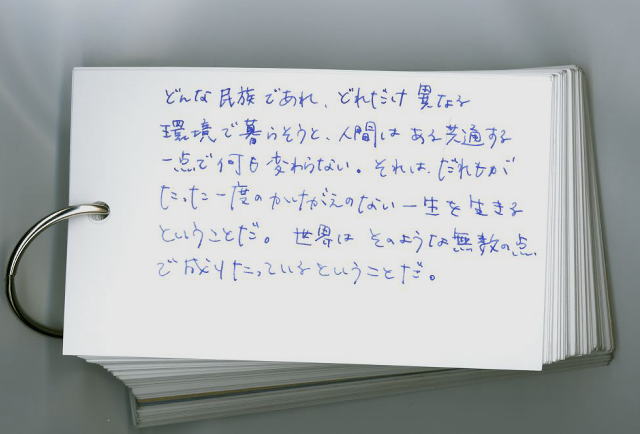 どんな民族であれ、どれだけ異なる
環境で暮らそうと、人間はある共通する
一点で何も変わらない。それは、だれもが
たった一度のかけがえのない一生を生きる
ということだ。世界はそのような無数の点
で成りたっているということだ。